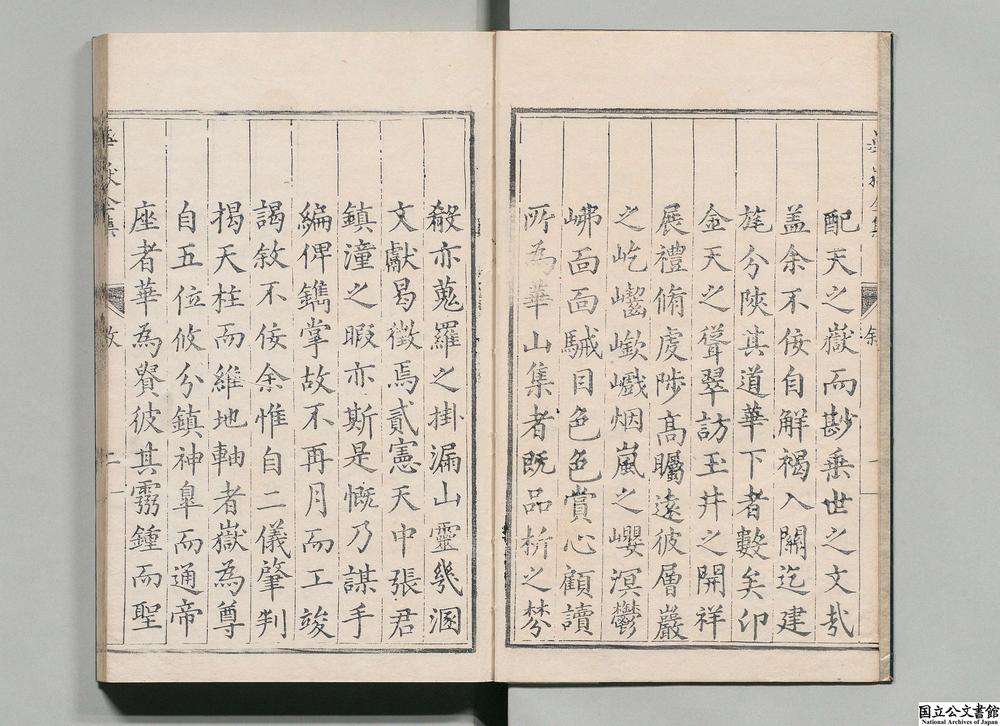 配天之嶽而尠垂世之文哉
盖余不佞自解褐入關迄建
旄分陝其道華下者數矣卬
金天之聳翠訪玉井之開祥
展禮脩虔陟高矚遠彼層巖
之屹㠋嶔巇烟嵐之巊溟鬱
岪面面駴目色色賞心顧讀
所為華山集者既品析之棼
殽亦蒐羅之掛漏山靈幾溷
文獻曷徵焉貳憲天中張君
鎮潼之暇亦斯是慨乃謀手
編俾鐫掌故不再月而工竣
謁敘不佞余惟自二儀肇判
揭天柱而維地軸者嶽為尊
自五位攸分鎮神皐而通帝
座者華為貴彼其靈鍾而聖
華嶽全集
敘
二
国立公文書館
National Archives of Japan